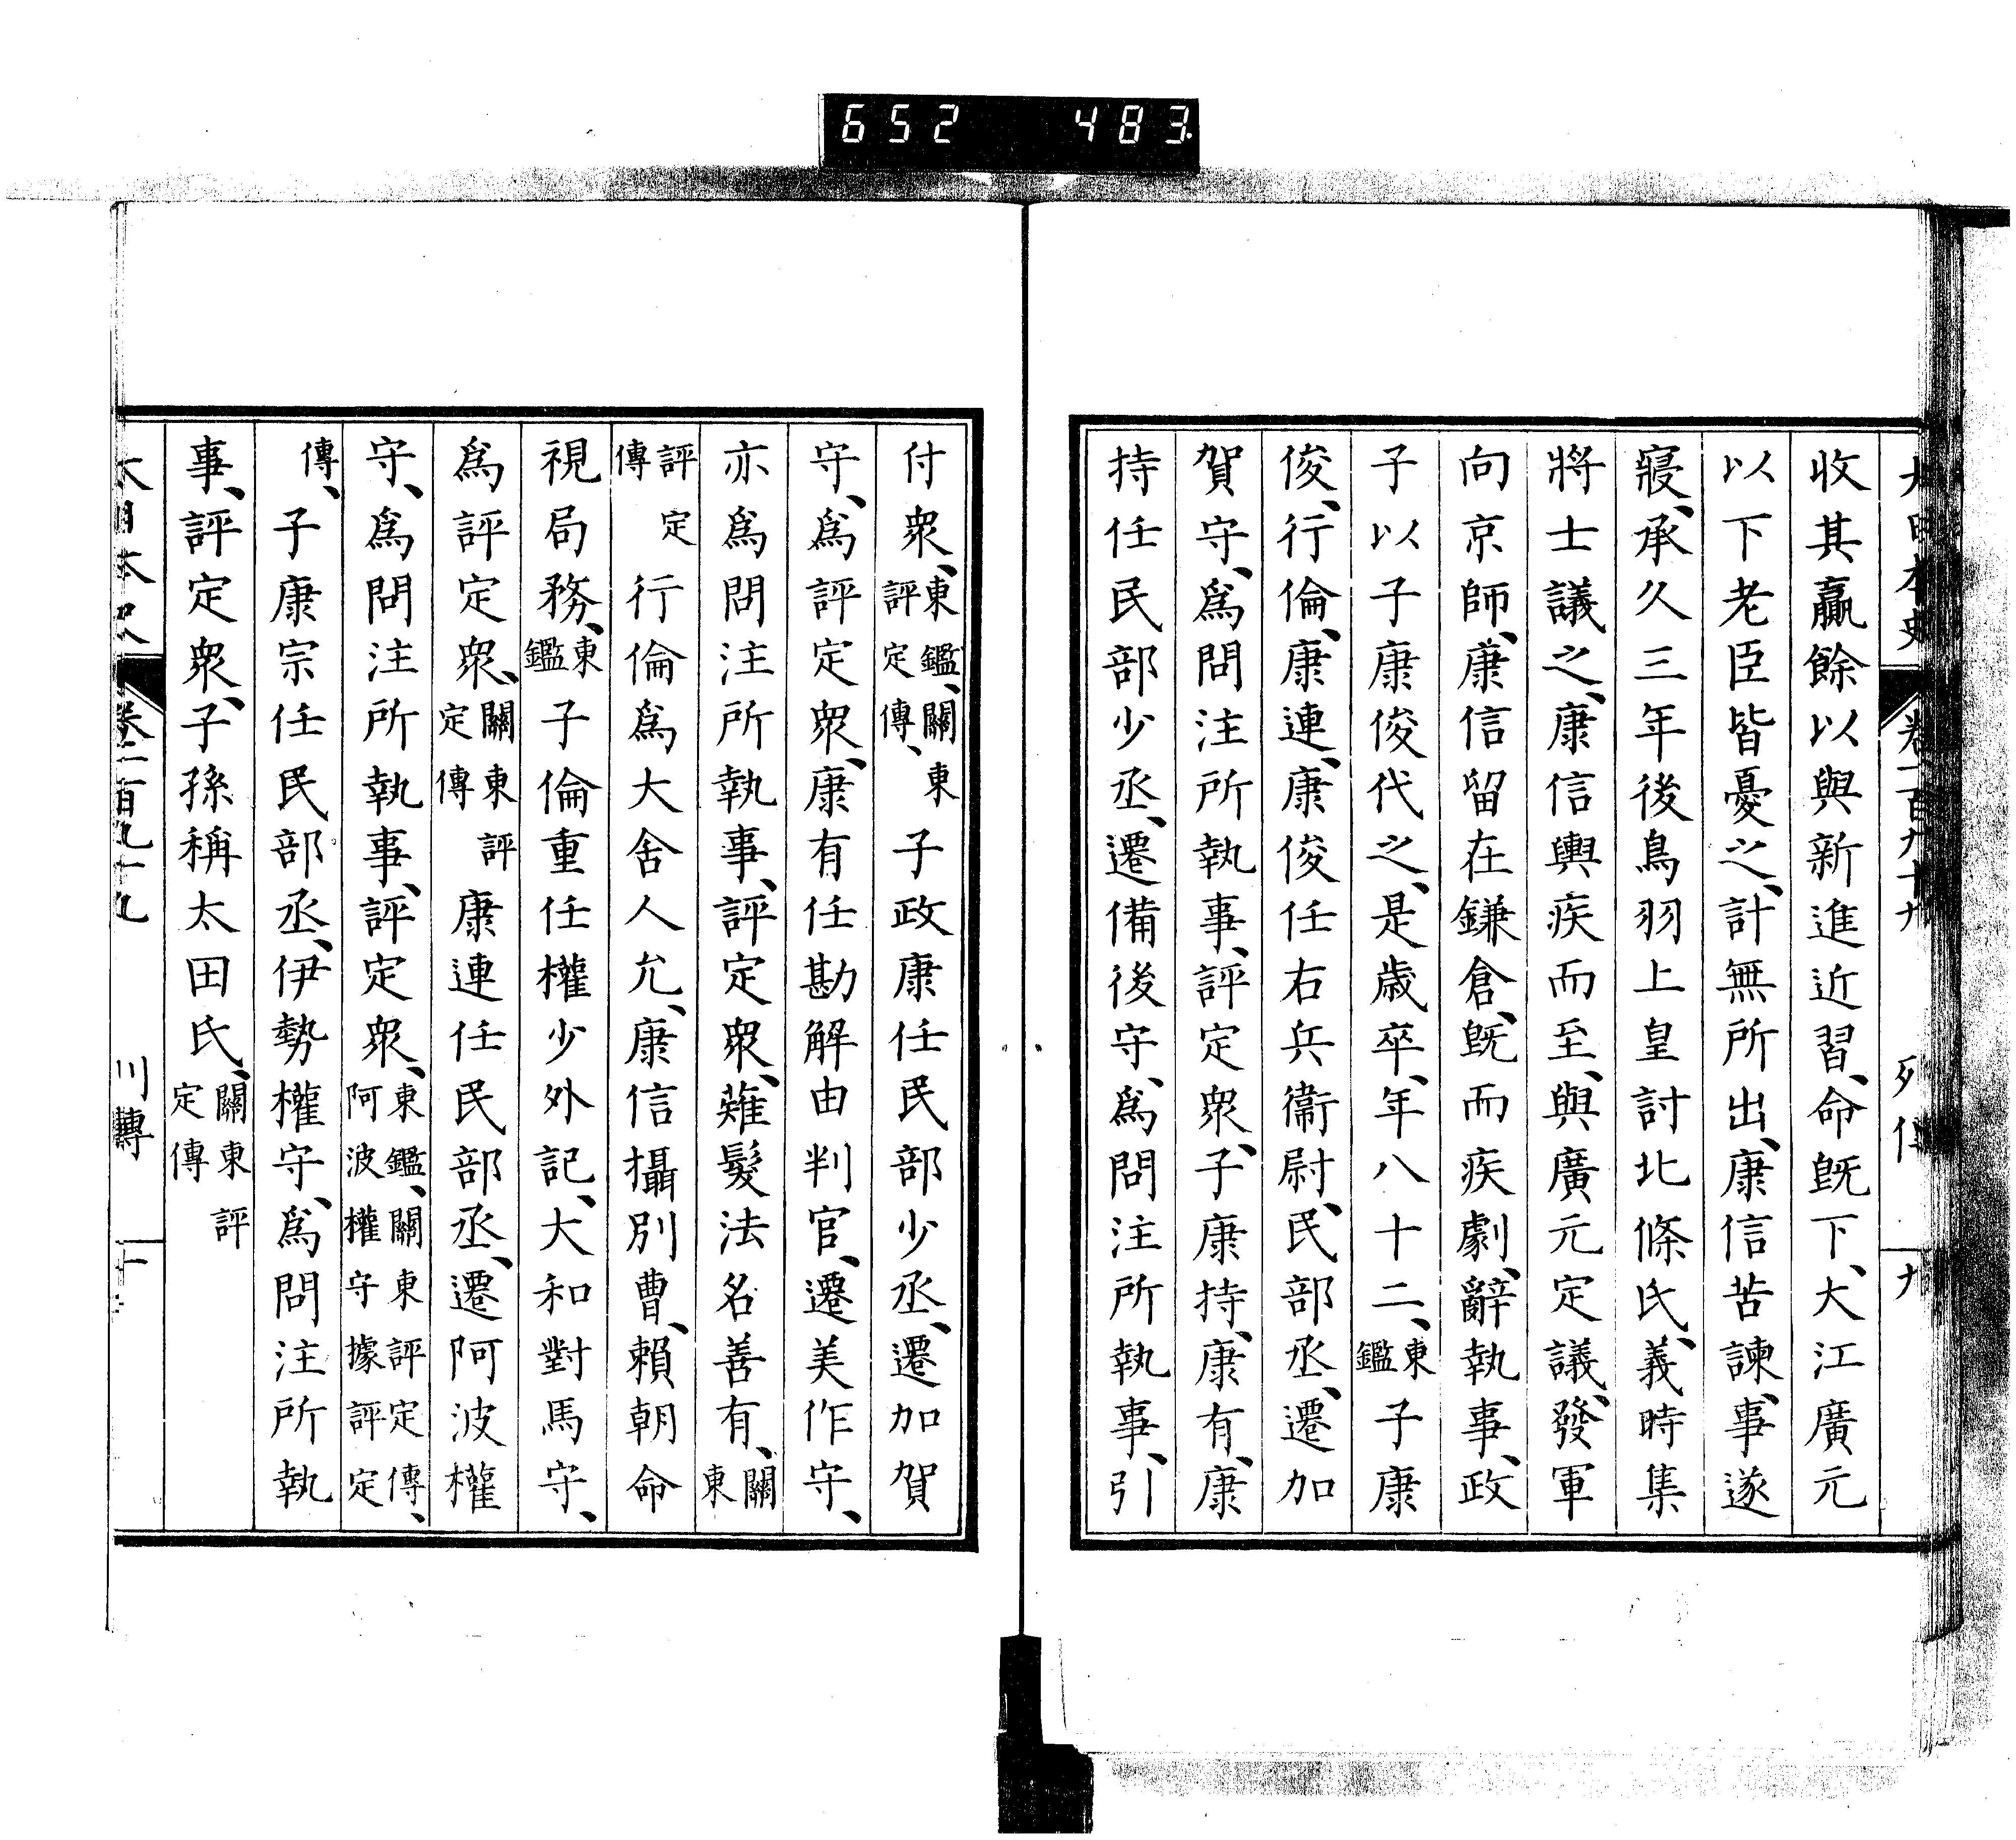 652 483
大日本史 卷一百九十九 列傳 九
收其贏餘以與新進近習、命既下、大江廣元
以下老臣皆憂之、計無所出、康信苦諫、事遂
寢、承久三年後鳥羽上皇討北條氏、義時集
將士議之、康信輿疾而至、與廣元定議、發軍
向京師、康信留在鎌倉、既而疾劇、辭執事、政
子以子康俊代之、是歲卒、年八十二、東鑑子康
俊、行倫、康連、康俊任右兵衞尉、民部丞、遷加
賀守、爲問注所執事、評定衆、子康持、康有、康
持任民部少丞、遷備後守、爲問注所執事、引
付衆、東鑑、關東評定傳、子政康任民部少丞、遷加賀
守、爲評定衆、康有任勘解由判官、遷美作守、
亦爲問注所執事、評定衆、薙髮法名善有、關東
評定傳行倫爲大舍人允、康信攝別曹、賴朝命
視局務、東鑑子倫重任權少外記、大和對馬守、
爲評定衆、關東評定傳康連任民部丞、遷阿波權
守、爲問注所執事、評定衆、東鑑、關東評定傳、阿波權守據評定
傳、子康宗任民部丞、伊勢權守、爲問注所執
事、評定衆、子孫稱太田氏、關東評定傳
大日本史 卷一百九十九 列傳 十